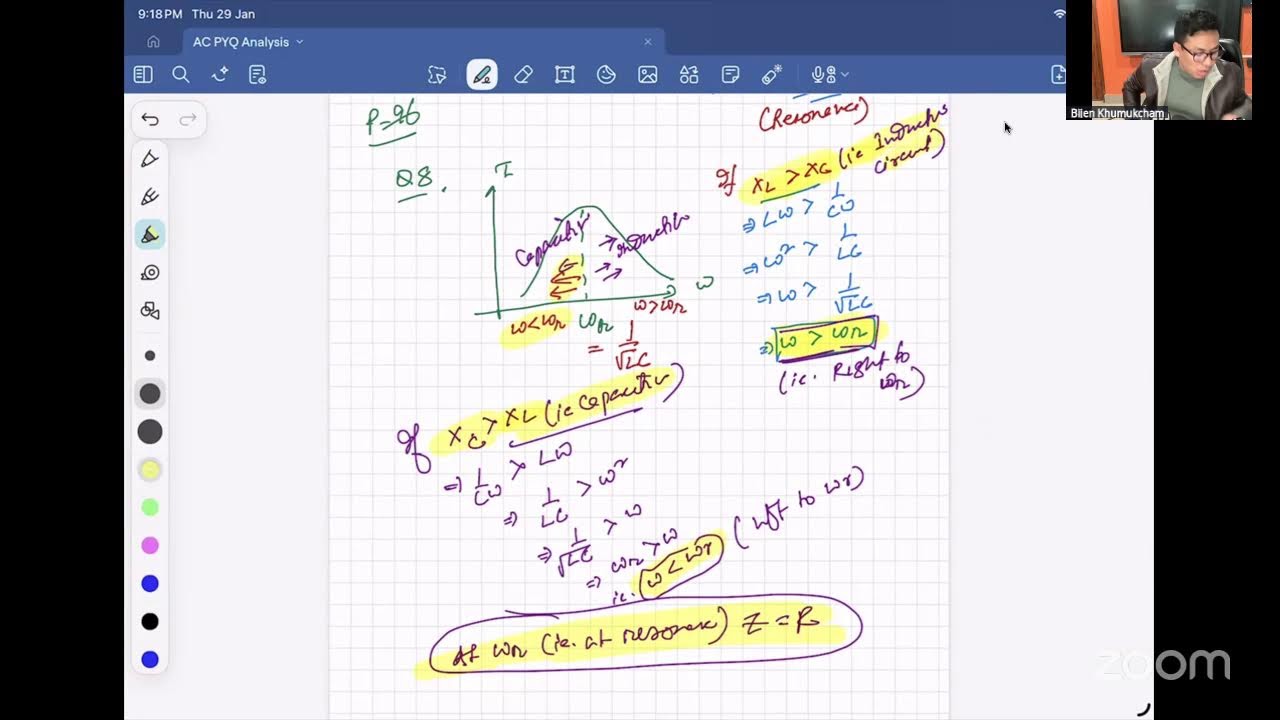 9:18 PM Thu 29 Jan
AC PYQ Analysis
Bilen Khumukcham
P=96
Q8.
I
Capacitiv
→ Inductive
ω
ω<ωr
ωr
ω>ωr
= 1/√LC
(Resonance)
If XL > XC (ie Inductive circuit)
⇒ Lω > 1/Cω
⇒ ω² > 1/LC
⇒ ω > 1/√LC
⇒ ω > ωr
(ie. Right to ωr)
If XC > XL (ie Capacitive)
⇒ 1/Cω > Lω
⇒ 1/LC > ω²
⇒ 1/√LC > ω
⇒ ωr > ω
ie. ω < ωr (left to ωr)
At ωr (ie. at resonance) Z = R
zoom